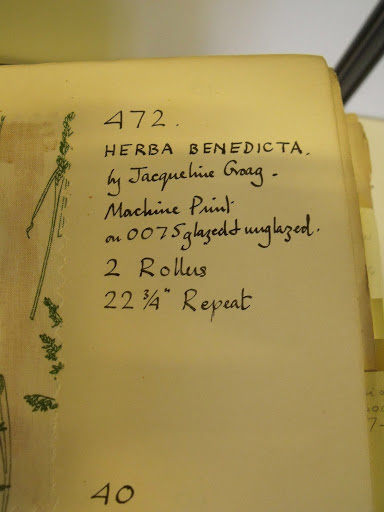 472.
HERBA BENEDICTA.
by Jacqueline Groag.
Machine Print
on 0075 glazed & unglazed.
2 Rollers
22 3/4" Repeat
40